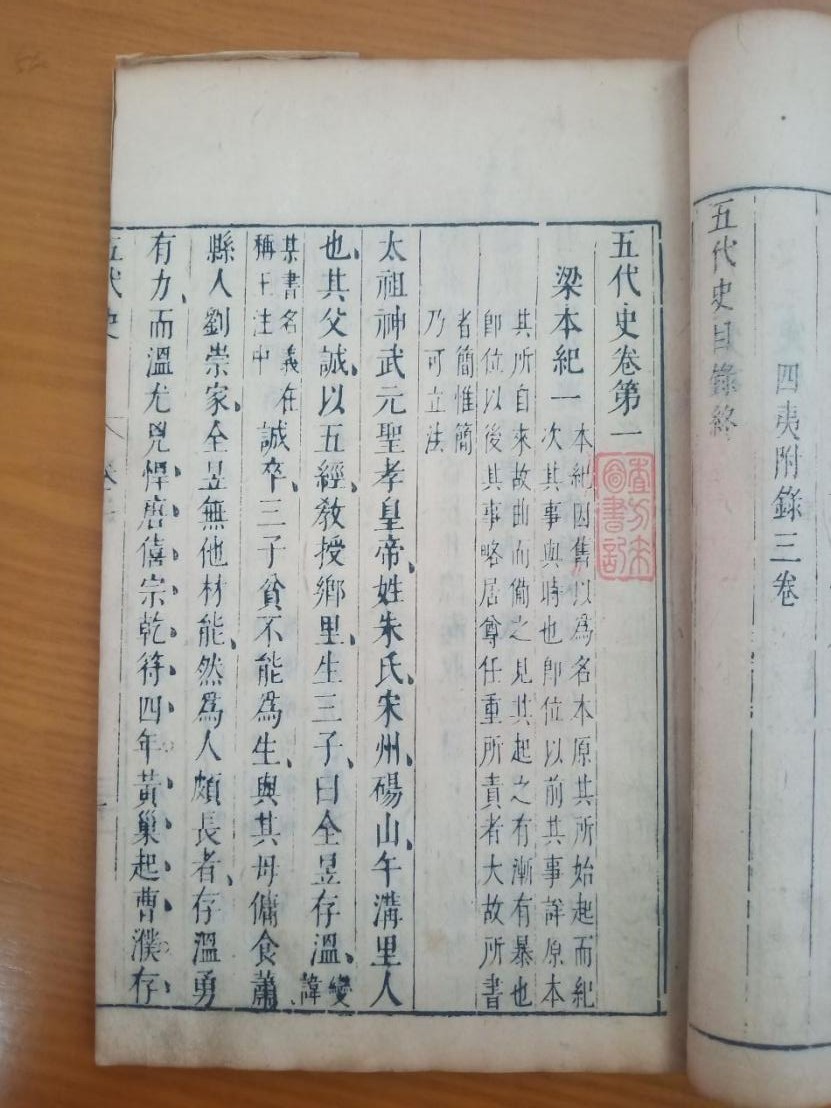 四夷附錄三卷
五代史目錄終
五代史卷第一
梁本紀一
本紀因舊以爲名本原其所始起而紀
次其事與時也卽位以前其事詳原本
其所自來故曲而備之見其起之有漸有暴也
卽位以後其事略居尊任重所責者大故所書
者簡惟簡
乃可立法
太祖神武元聖孝皇帝姓朱氏宋州碭山午溝里人
也其父誠以五經教授鄉里生三子曰全昱存溫變諱
某書名義在稱王注中誠卒三子貧不能爲生與其母傭食蕭
縣人劉崇家全昱無他材能然爲人頗長者存溫勇
有力而溫尤兇悍唐僖宗乾符四年黃巢起曹濮存
五代史